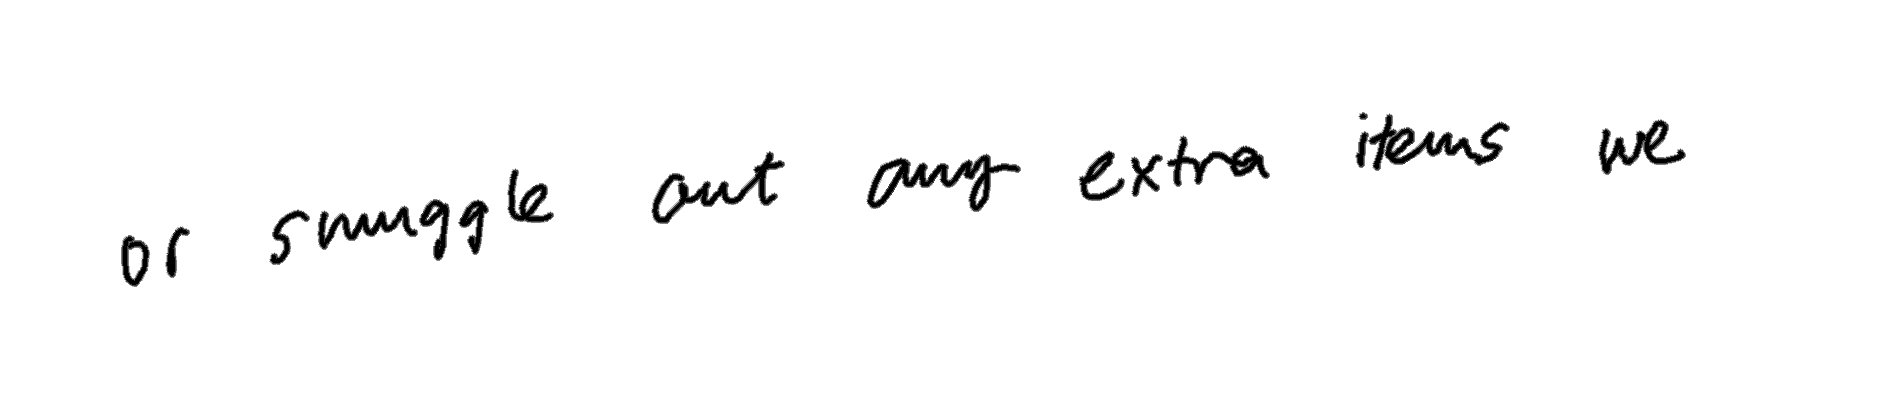 or smuggle out any extra items we